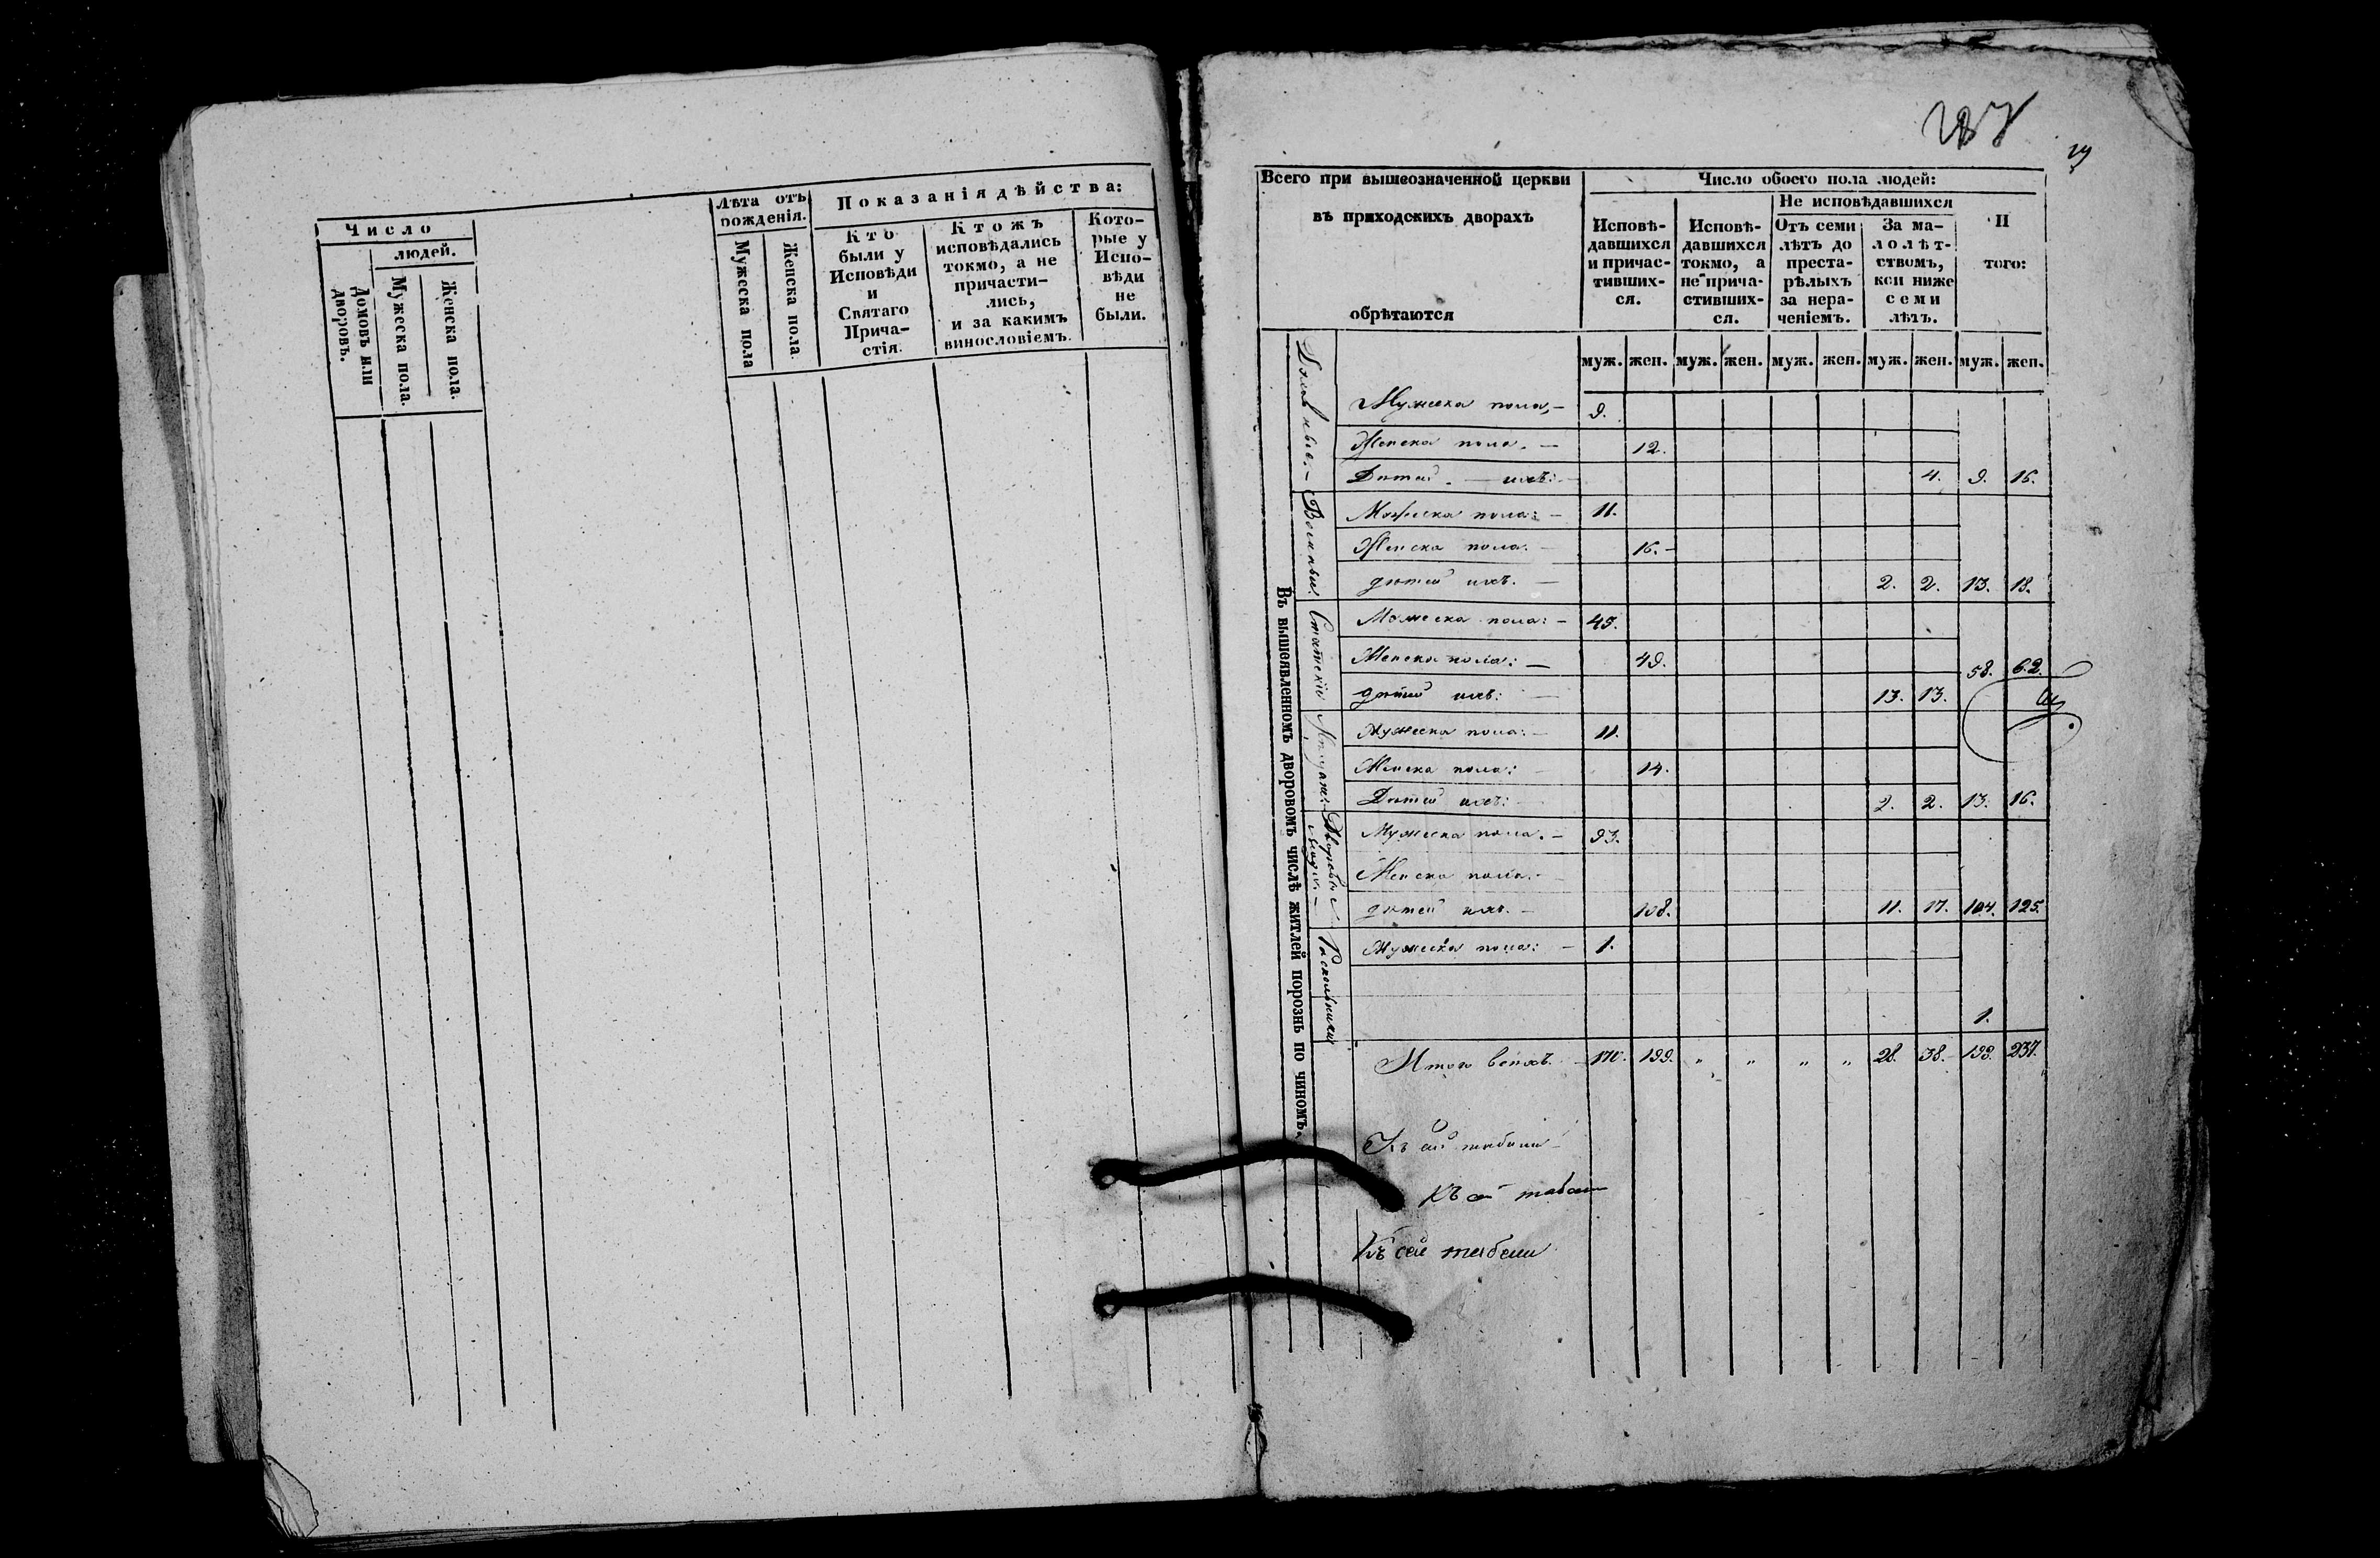 Число
людей.
Домовъ или дворовъ.
Мужеска пола.
Женска пола.
Лѣта отъ рожденія.
Мужеска пола
Женска пола
Показанія дѣйства:
Кто были у Исповѣди и Святаго Прича-
стія.
Ктожъ исповѣдались токмо, а не причасти-
лись, и за какимъ винословіемъ.
Кото-
рые у Испо-
вѣди не были.
Всего при вышеозначенной церкви
въ приходскихъ дворахъ
обрѣтаются
Число обоего пола людей:
Исповѣ-
давшихся
и причас-
тивших-
ся.
Исповѣ-
давшихся
токмо, а
не прича-
стивших-
ся.
Не исповѣдавшихся
Отъ семи
лѣтъ до
преста-
рѣлыхъ
за нера-
ченіемъ.
За ма-
лолѣт-
ствомъ,
кои ниже
семи
лѣтъ.
И
того:
муж. жен. муж. жен. муж. жен. муж. жен. муж. жен.
Въ вышеявленномъ дворовомъ числѣ житлей порознь по чиномъ.
Духовные.
Мужеска пола, — 9.
Женска пола. — 12.
Дѣтей. — ихъ: 4. 9. 16.
Военные.
Мужеска пола: — 11.
Женска пола. — 16. —
дѣтей ихъ. — 2. 2. 13. 18.
Статскіе
Мужеска пола: — 45.
Женска пола: — 49.
58. 62.
дѣтей ихъ: — 13. 13.
Мужеска пола: — 11.
Женска пола: — 14.
Дѣтей ихъ: — 2. 2. 13. 16.
Дворовые люди. —
Мужеска пола. — 93.
Женска пола. —
дѣтей ихъ. — 108. 11. 17. 104. 125.
Раскольники
Мужеска пола: — 1.
1.
Итого всѣхъ. — 170. 199. „ „ „ „ 28. 38. 198. 237.
Къ сей табели
Къ сей табели
Къ сей табели